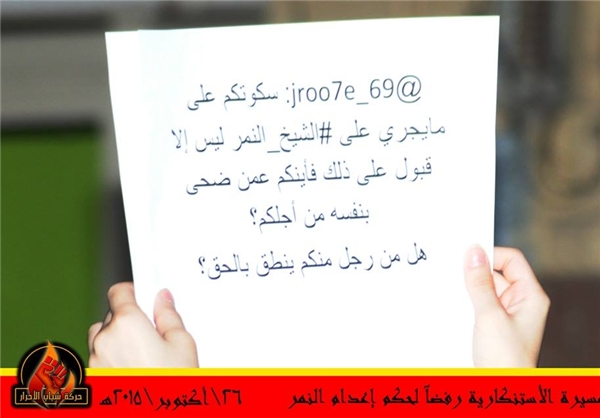 @jroo7e_69: سكوتكم على
مايجري على #الشيخ_النمر ليس إلا
قبول على ذلك فأينكم عمن ضحى
بنفسه من أجلكم؟
هل من رجل منكم ينطق بالحق؟
مسيرة الأستنكارية رفضاً لحكم إعدام النمر
٢٦\أكتوبر\٢٠١٥هـ
حركة شباب الأحرار